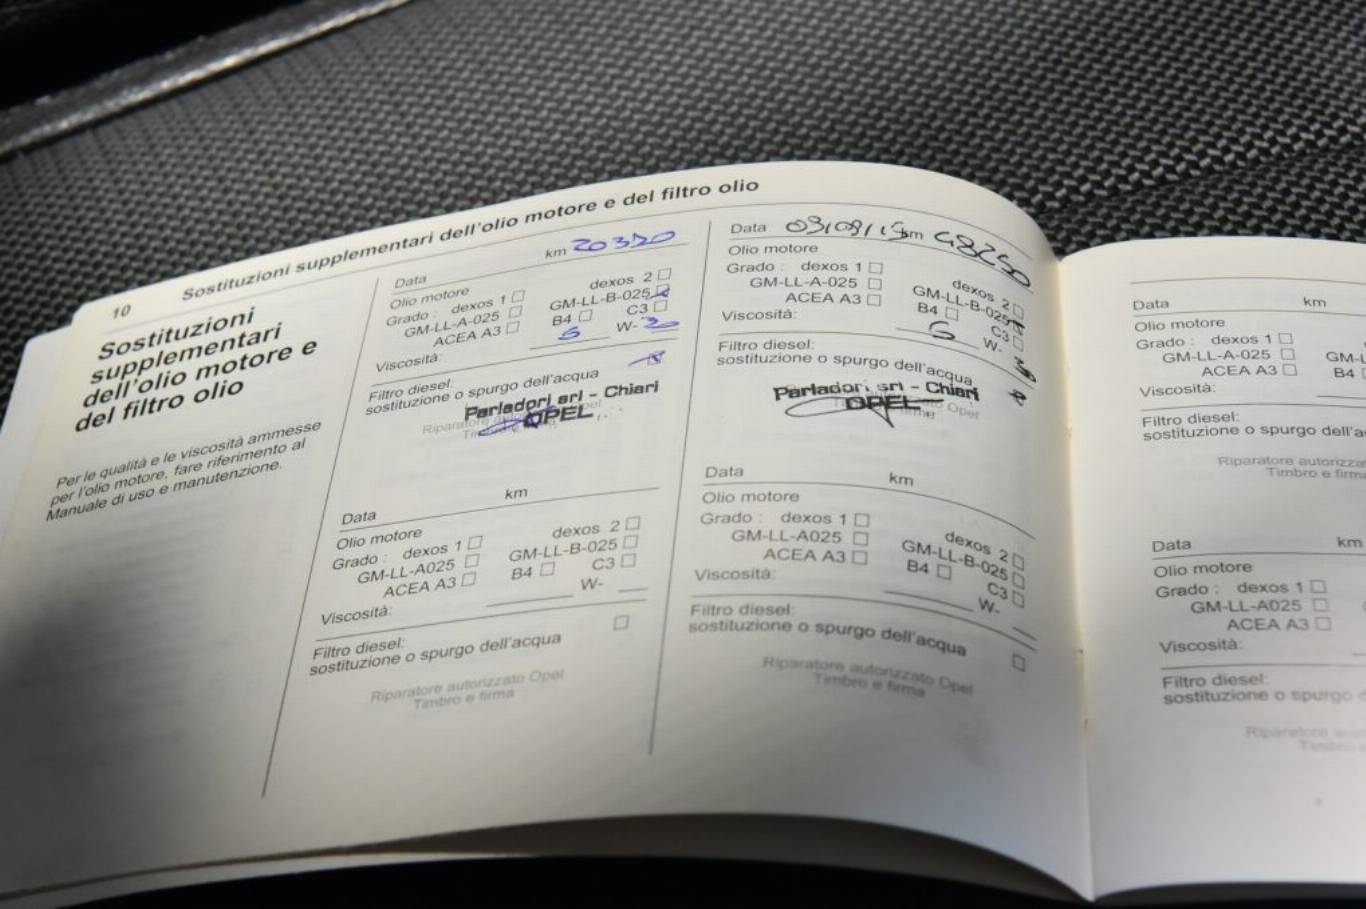 10 Sostituzioni supplementari dell'olio motore e del filtro olio
Sostituzioni
supplementari
dell'olio motore e
del filtro olio
Per le qualità e le viscosità ammesse
per l'olio motore, fare riferimento al
Manuale di uso e manutenzione.
Data km 20320
Olio motore
Grado : dexos 1 dexos 2
GM-LL-A-025 GM-LL-B-025
ACEA A3 B4 C3
Viscosità: 5 W- 30
Filtro diesel:
sostituzione o spurgo dell'acqua
Parladori srl - Chiari
OPEL
Riparatore Opel
Data km
Olio motore
Grado : dexos 1 dexos 2
GM-LL-A025 GM-LL-B-025
ACEA A3 B4 C3
Viscosità: W-
Filtro diesel:
sostituzione o spurgo dell'acqua
Riparatore autorizzato Opel
Timbro e firma
Data 03/09/15 km 48250
Olio motore
Grado : dexos 1 dexos 2
GM-LL-A-025 GM-LL-B-025
ACEA A3 B4 C3
Viscosità: 5 W- 30
Filtro diesel:
sostituzione o spurgo dell'acqua
Parladori srl - Chiari
OPEL
Data km
Olio motore
Grado : dexos 1 dexos 2
GM-LL-A025 GM-LL-B-025
ACEA A3 B4 C3
Viscosità: W-
Filtro diesel:
sostituzione o spurgo dell'acqua
Riparatore autorizzato Opel
Timbro e firma
Data km
Olio motore
Grado : dexos 1
GM-LL-A-025 GM-L
ACEA A3 B4
Viscosità:
Filtro diesel:
sostituzione o spurgo dell'a
Riparatore autorizza
Timbro e firm
Data km
Olio motore
Grado : dexos 1
GM-LL-A025
ACEA A3
Viscosità:
Filtro diesel:
sostituzione o spurgo
Riparatore
Timbro e